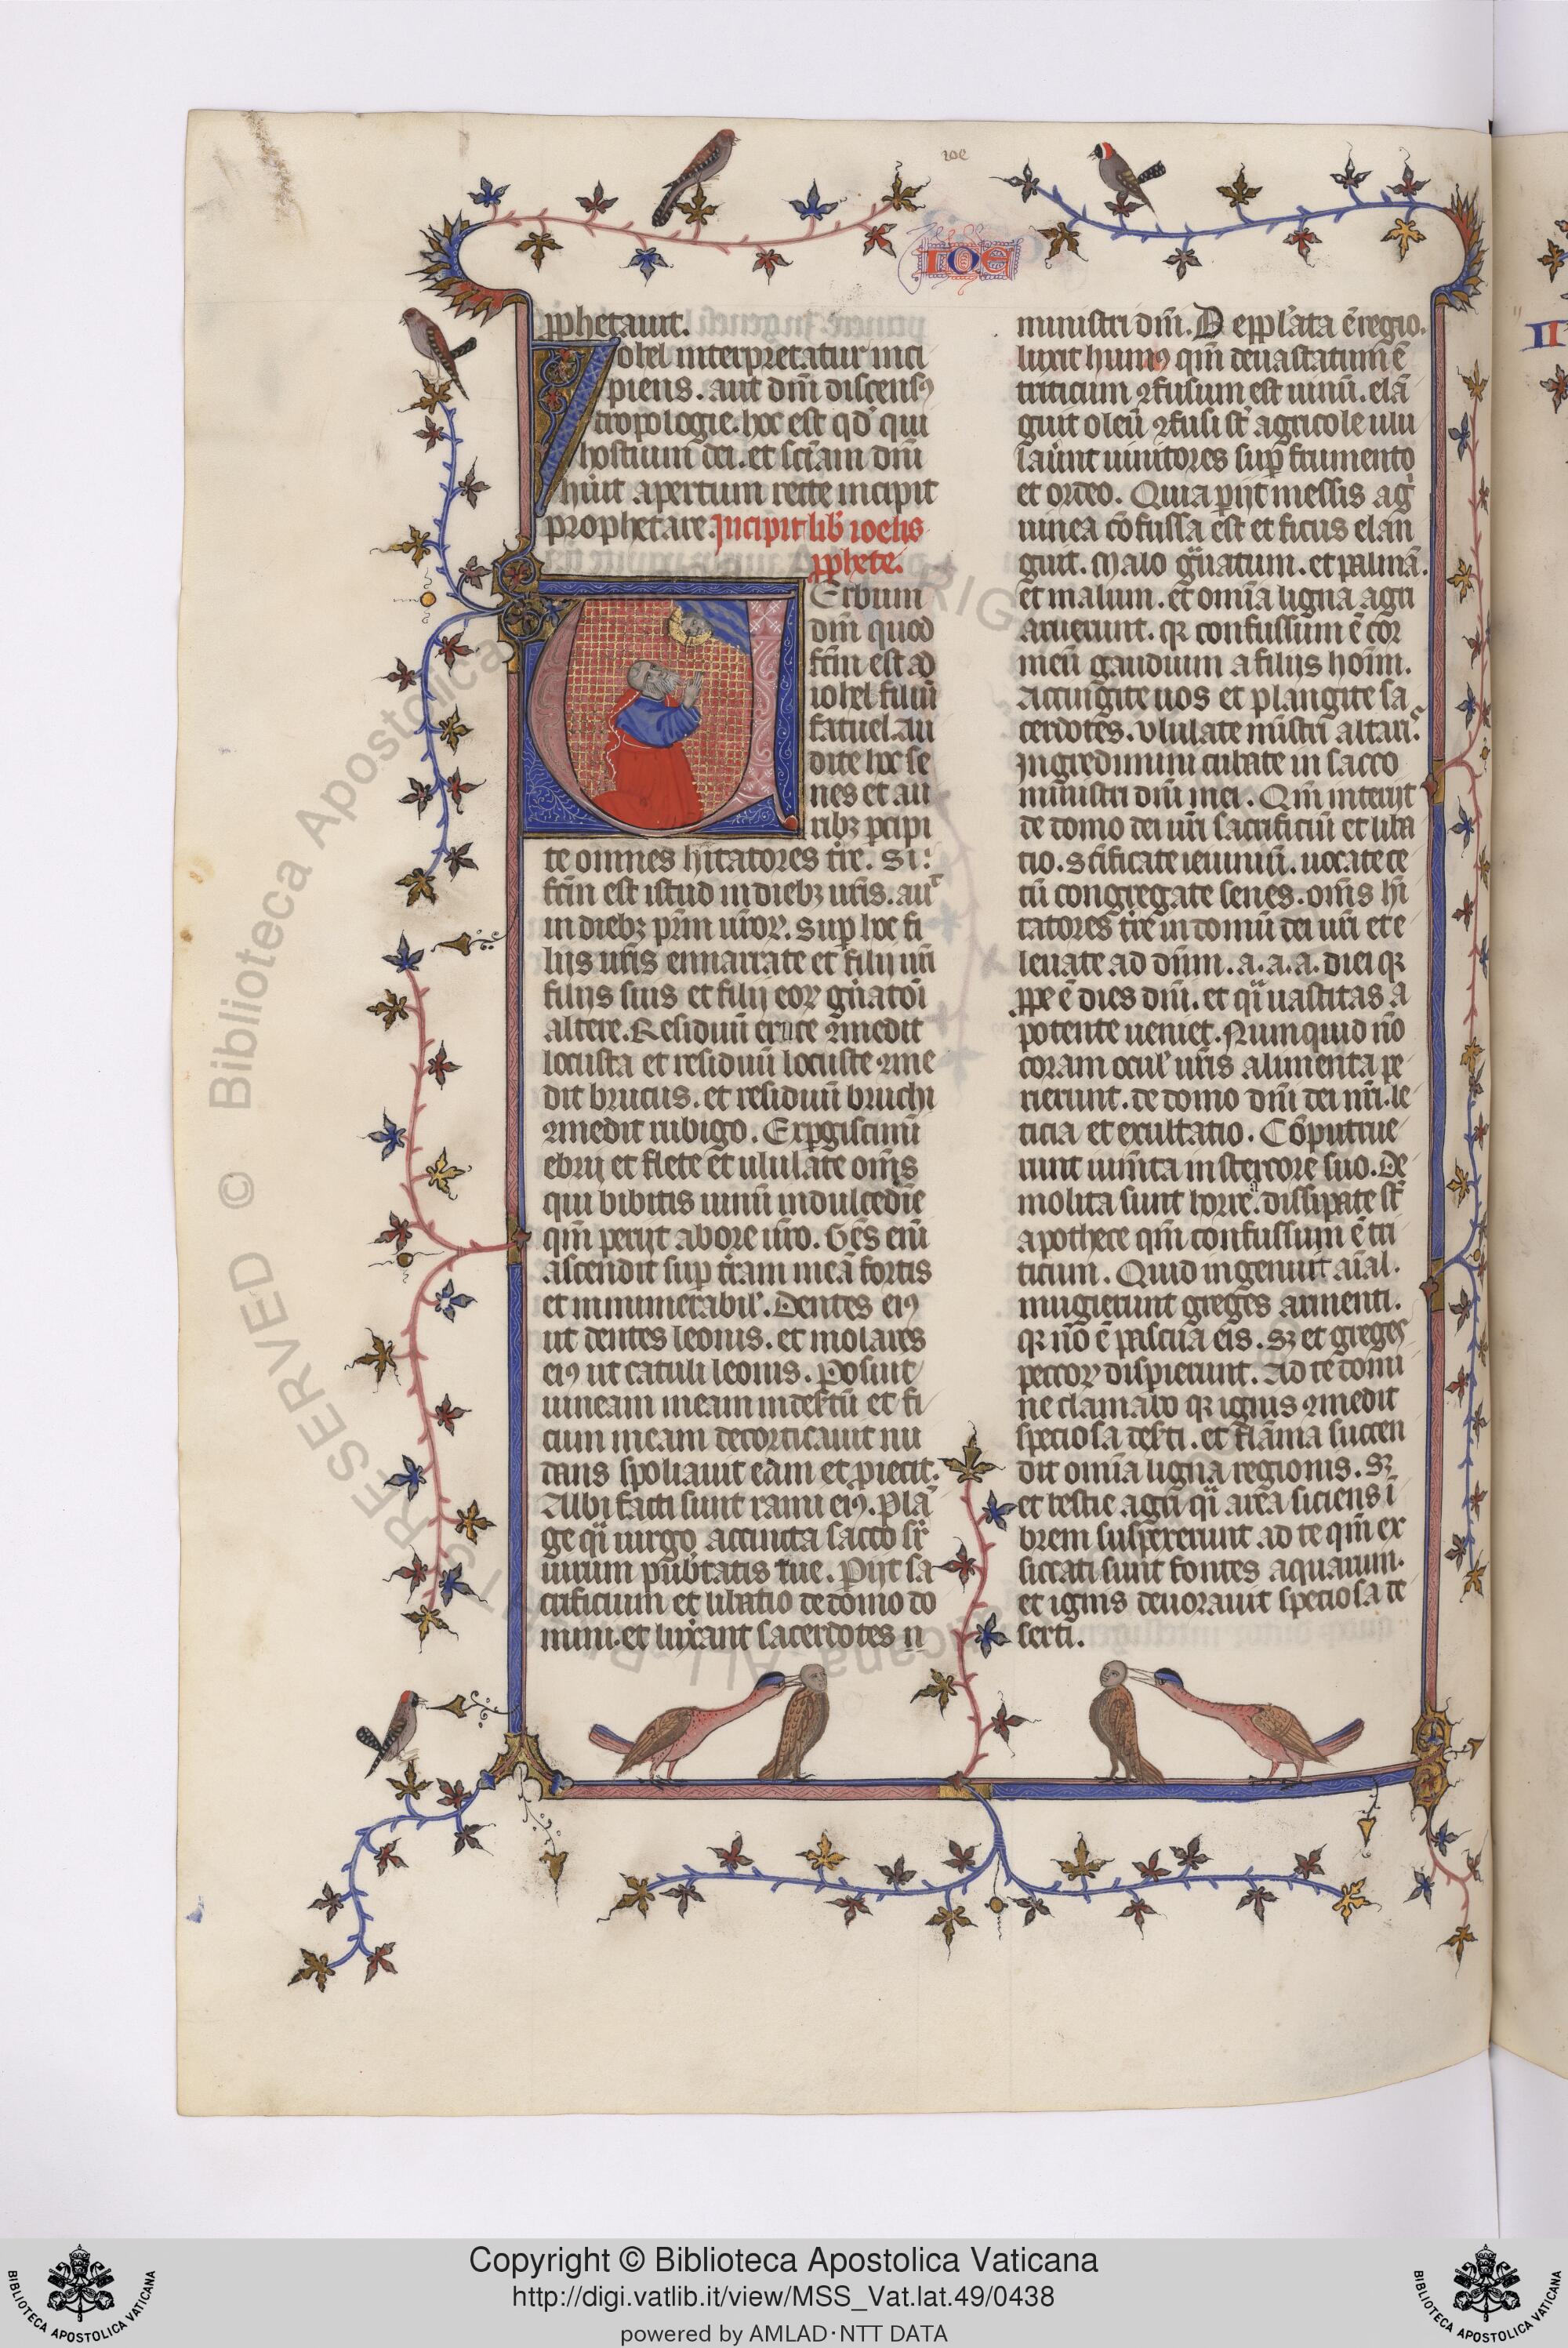 ioe
IOE
ꝓphetauit.
Iohel interpretatur inci
piens. aut dn̄i discensꝰ
tropologie. hoc est qd̓ qui
hostium dei. et sc̄iam dn̄i
hūit apertum recte incipit
prophetare. Incipit lib̓ ioelis
ꝓphete.
VErbum
dn̄i quod
fc̄m est ad
iohel filiū
fatuel. au
dite hoc se
nes et au
ribꝫ ꝑcipi
te omnes hitatores tr̄e. Si
fc̄m est istud in diebꝫ ur̄is. aut
in diebꝫ pr̄m ur̄oꝝ. Suꝑ hoc fi
liis ur̄is ennarrate et filii ur̄i
filiis suis et filii eoꝝ gn̄atōi
altere. Residuū eruce ꝯmedit
locusta et residuū locuste ꝯme
dit brucus. et residuū bruchi
ꝯmedit rubigo. Exꝑgiscimī
ebrii et flete et ululate om̄s
qui bibitis uinū in dulcedīe
qm̄ periit ab ore ur̄o. Gēs enī
ascendit suꝑ tr̄am meā fortis
et innumerabil̓. Dentes eiꝰ
ut dentes leonis. et molares
eiꝰ ut catuli leonis. Posuit
uineam meam in deſtū et fi
cum meam decorticauit nu
dans spoliauit eam et ꝓiecit.
Albi facti sunt rami eiꝰ. Plā
ge q̈i uirgo accincta sacco sr̄
uirum pub̓tatis tue. Ꝑiit sa
crificium et libatio de domo do
mini. et lux̄ant sacerdotes
ministri dn̄i. Depp̄l̓ata ē regio.
luxit humꝰ qm̄ deuastatum ē
triticum ꝯfusum est uinū. elā
guit oleū ꝯfusi st̄ agricole ulu
lau̓nt uinitores suꝑ frumento
et ordeo. Quia ꝑiit messis agi
uinea cōfussa est et ficus elan
guit. Malo g̈natum. et palmā.
et malum. et om̄ia ligna agri
aruerunt. qꝛ confussum ē cor
meū gaudium a filiis hoīm.
Accingite uos et plangite sa
cerdotes. Ululate mīstri altaris
Ingredimini cubate in sacco
ministri dn̄i mei. Qm̄ interiit
de domo dei ur̄i sacrificiū et liba
tio. Sc̄ificate ieiuniū. uocate ce
tū congregate senes. om̄s hi
tatores tr̄e in domū dei ur̄i et e
leuate ad dn̄m. a. a. a. diei qꝛ
ꝓpe ē dies dn̄i. et q̈i uastitas a
potente ueniet. Numquid nō
coram ocul̓ ur̄is alimenta pe
rierunt. de domo dn̄i dei nr̄i. le
ticia et exultatio. Cōputrue
runt ium̄ta in stercore suo. De
molita sunt horrea. dissipate st̄
apothece qm̄ confussum ē tri
ticum. Quid ingenuit aīal.
mugierunt greges armenti.
qꝛ nō ē pascua eis. Sꝫ et greges
peccoꝝ dispierunt. Ad te domi
ne clamabo qꝛ ignis ꝯmedit
speciosa deſti. et flāma succen
dit om̄ia ligna regionis. Sꝫ
et bestie agri q̈i area siciens ī
brem suspexerunt ad te qm̄ ex
siccati sunt fontes aquarum.
et ignis deuorauit speciosa de
serti.
© Biblioteca Apostolica
RESERVED
Copyright © Biblioteca Apostolica Vaticana
http://digi.vatlib.it/view/MSS_Vat.lat.49/0438
powered by AMLAD·NTT DATA
BIBLIOTECA APOSTOLICA VATICANA
BIBLIOTECA APOSTOLICA VATICANA